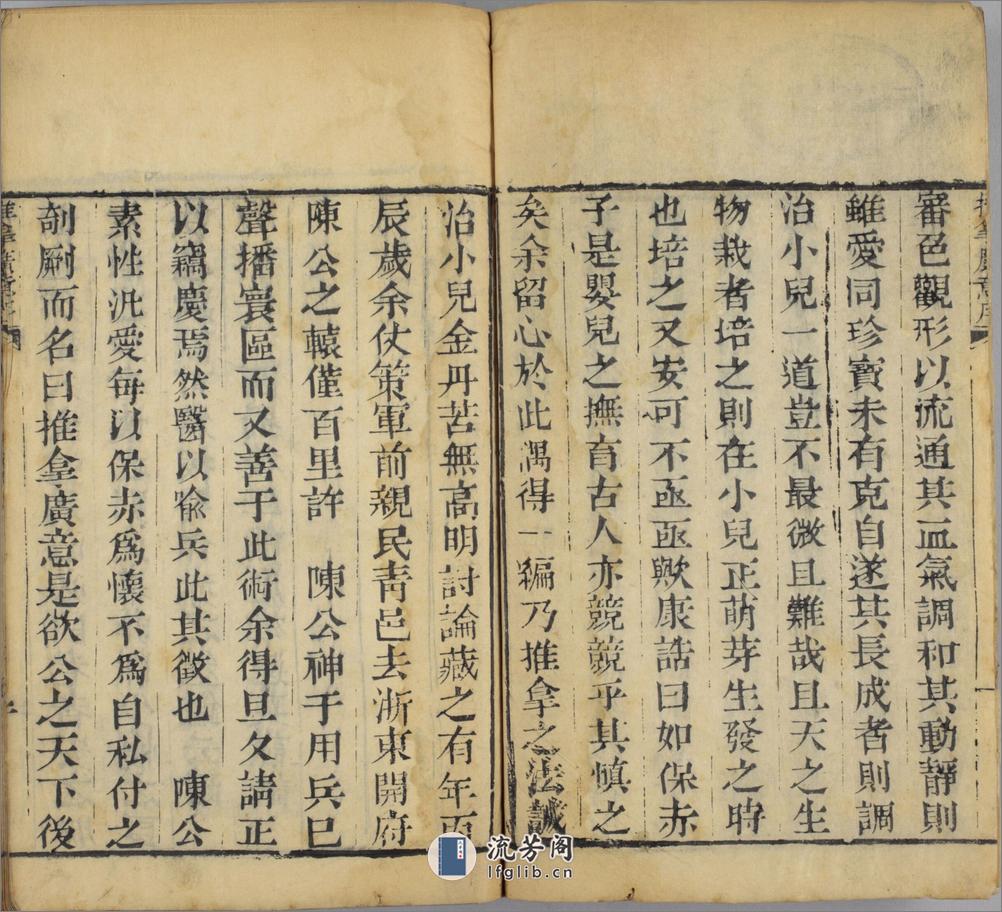 審色觀形以流通其血氣調和其動靜則
雖愛同珍寶未有克自遂其長成者則調
治小兒一道豈不最微且難哉且天之生
物栽者培之則在小兒正萌芽生發之時
也培之又安可不亟亟歟康誥曰如保赤
子是嬰兒之撫育古人亦競競乎其慎之
矣余留心於此遇得一編乃推拿之法誠
治小兒金丹苦無高明討論藏之有年丙
辰歲余仗策軍前親民青邑去浙東開府
陳公之轅僅百里許 陳公神于用兵已
聲播寰區而又善于此術余得旦夕請正
以竊慶焉然醫以喻兵此其徵也 陳公
素性汎愛每以保赤爲懷不爲自私付之
剞劂而名曰推拿廣意是欲公之天下後
流芳阁
lfglib.cn